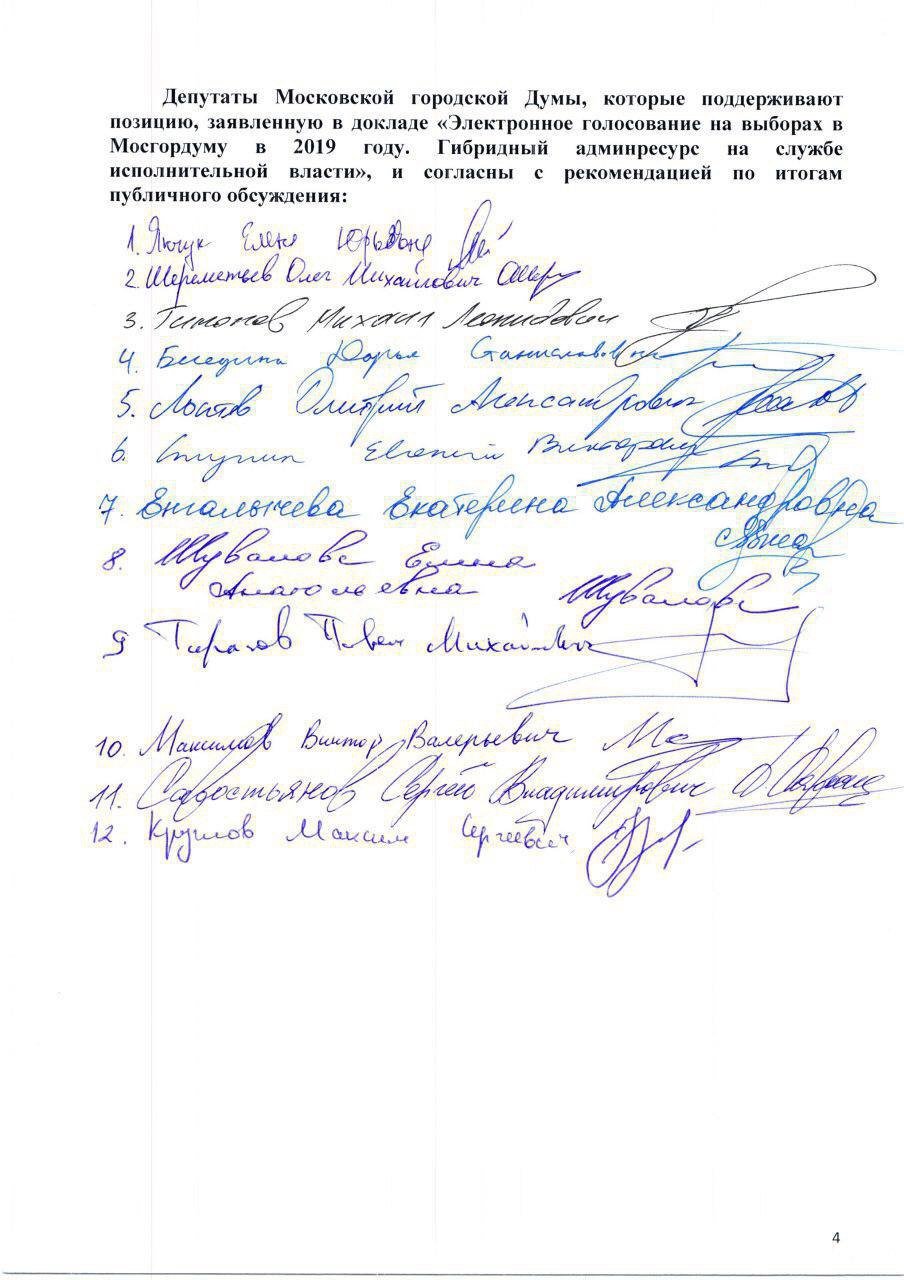 Депутаты Московской городской Думы, которые поддерживают
позицию, заявленную в докладе «Электронное голосование на выборах в
Мосгордуму в 2019 году. Гибридный админресурс на службе
исполнительной власти», и согласны с рекомендацией по итогам
публичного обсуждения:
1. Янчук Елена Юрьевна
2. Шереметьев Олег Михайлович
3. Тимонов Михаил Леонидович
4. Беседина Дарья Станиславовна
5. Локтев Дмитрий Александрович
6. Ступин Евгений Викторович
7. Енгалычева Екатерина Александровна
8. Шувалова Елена
Анатольевна Шувалова
9 Тарасов Павел Михайлович
10. Максимов Виктор Валерьевич
11. Савостьянов Сергей Владимирович
12. Круглов Максим Сергеевич
4